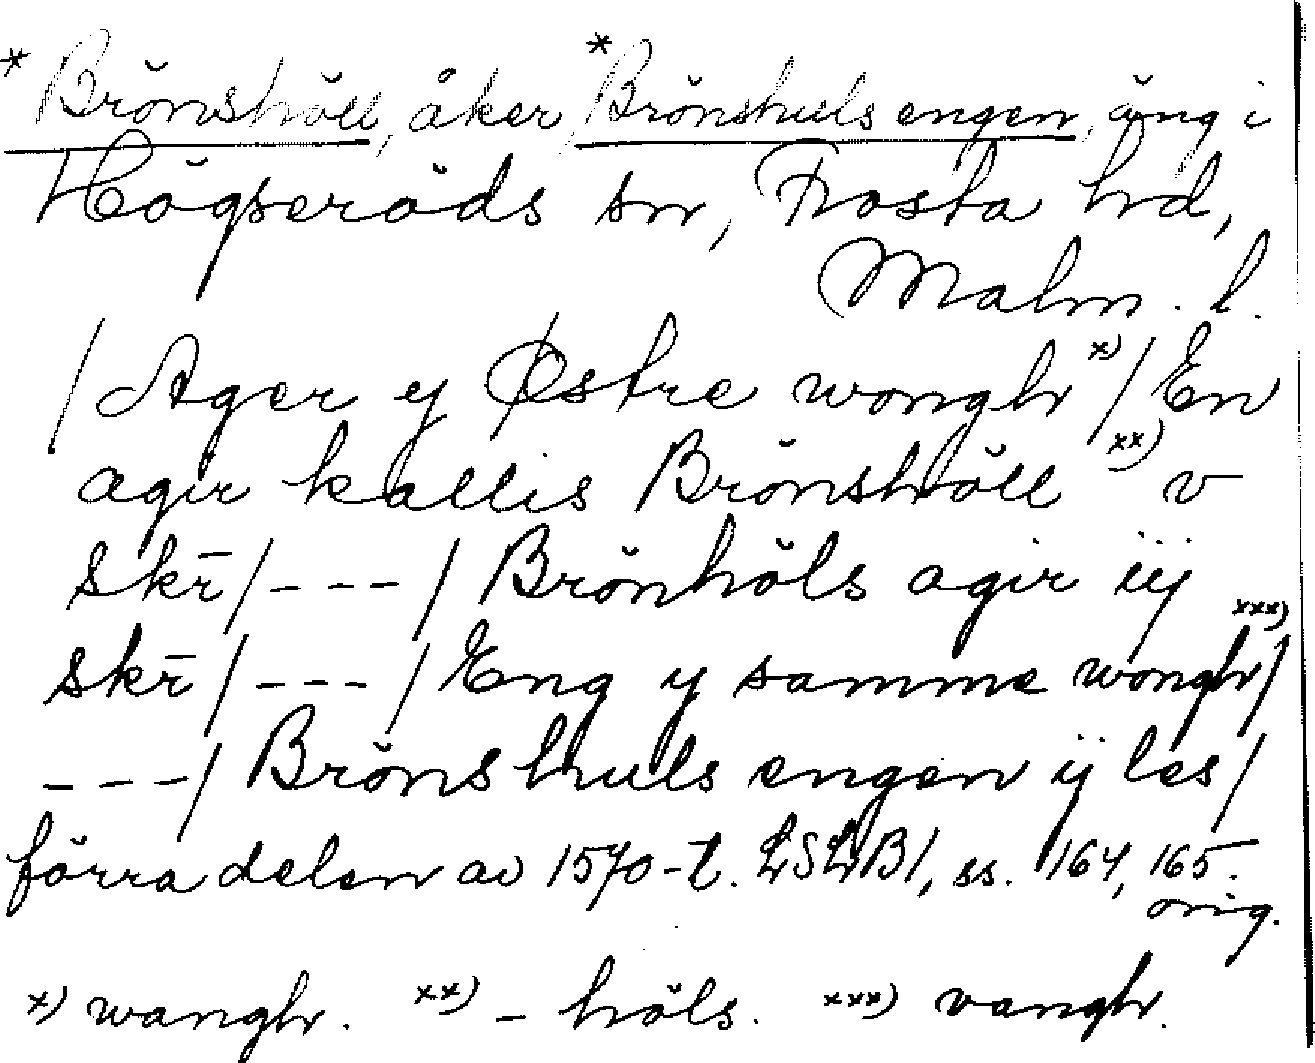 *Brönshöll, åker, *Brönshuls engen, äng i
Högseröds sn, Frosta hd,
Malm. l.
/Ager y Østre wongh x)/ En
agir kallis Brönshöll xx) v
skr̄/---/ Brönhöls agir iij
skr̄/---/ Eng y samme wongh xxx)/
---/ Bröns huls engen ij les/
förra delen av 1570-t. LSLB1, ss. 164, 165.
orig.
x) wangh. xx) -höls. xxx) vangh.